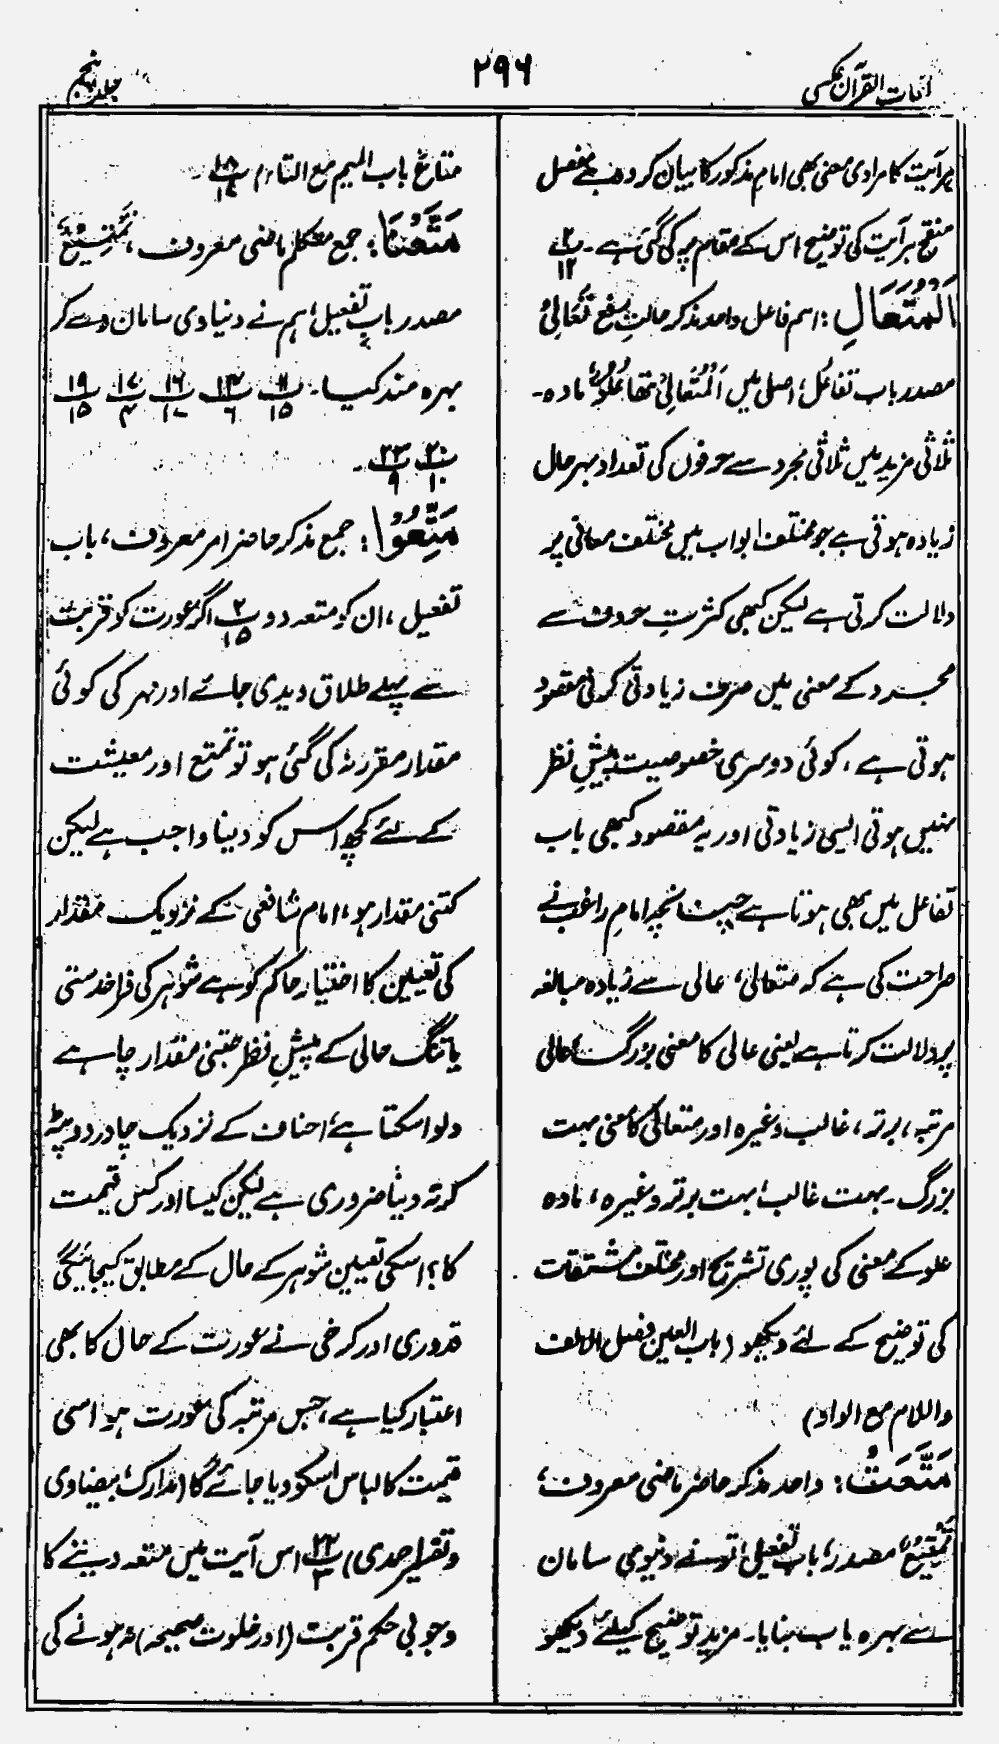 لغات القرآن عکسی
۲۹۶
جلد پنجم
ہر آیت کا مرادی معنی بھی امام مذکور کا بیان کردہ ہے مفصل
منقح ہر آیت کی توضیح اس کے مقام پر کی گئی ہے۔ پ۲/۱۲
اَلْمُتَعَالِ: اسم فاعل واحد مذکر حالتِ رفع تَعَالِیْ
مصدر باب تفاعل، اصل میں اَلْمُتَعَالِیُ تھا عُلُوٌّ مادہ۔
ثلاثی مزید میں ثلاثی مجرد سے حرفوں کی تعداد بہر حال
زیادہ ہوتی ہے جو مختلف ابواب میں مختلف معانی پر
دلالت کرتی ہے لیکن کبھی کثرتِ حروف سے
مجرد کے معنی میں صرف زیادتی کرنی مقصود
ہوتی ہے، کوئی دوسری خصوصیت پیشِ نظر
نہیں ہوتی ایسی زیادتی اور یہ مقصود کبھی باب
تفاعل میں بھی ہوتا ہے چنانچہ امام راغب نے
صراحت کی ہے کہ متعالی، عالی سے زیادہ مبالغہ
پر دلالت کرتا ہے یعنی عالی کا معنی بزرگ، عالی
مرتبہ، برتر، غالب وغیرہ اور متعالی کا معنی بہت
بزرگ۔ بہت غالب، بہت برتر وغیرہ، مادہ
علو کے معنی کی پوری تشریح اور مختلف مشتقات
کی توضیح کے لئے دیکھو (باب العین فصل الالف
واللام مع الواو)
مَتَّعْتَ: واحد مذکر حاضر ماضی معروف،
تَمْتِیْعٌ مصدر، باب تفعیل، تو نے دنیوی سامان
سے بہرہ یاب بنایا۔ مزید توضیح کیلئے دیکھو
متاعٌ باب المیم مع التاء پ۱۸/۱۷۔
مَتَّعْنَا: جمع متکلم ماضی معروف، تَمْتِیْعٌ
مصدر باب تفعیل، ہم نے دنیاوی سامان دے کر
بہرہ مند کیا۔ پ۱۱/۱۵ پ۱۴/۶ پ۱۶/۱۷ پ۱۷/۴ پ۱۹/۱۵
پ۲۰/۱۰ پ۲۳/۹۔
مَتِّعُوْا: جمع مذکر حاضر امر معروف، باب
تفعیل، ان کو متعہ دو پ۲/۱۵ اگر عورت کو قربت
سے پہلے طلاق دیدی جائے اور مہر کی کوئی
مقدار مقرر نہ کی گئی ہو تو تمتع اور معیشت
کے لئے کچھ اس کو دینا واجب ہے لیکن
کتنی مقدار ہو، امام شافعی کے نزدیک مقدار
کی تعیین کا اختیار حاکم کو ہے شوہر کی فراخدستی
یا تنگ حالی کے پیشِ نظر جتنی مقدار چاہے
دلوا سکتا ہے، احناف کے نزدیک چادر دوپٹہ
کرتہ دینا ضروری ہے لیکن کیسا اور کس قیمت
کا؟ اسکی تعیین شوہر کے حال کے مطابق کیجائیگی
قدوری اور کرخی نے عورت کے حال کا بھی
اعتبار کیا ہے، جس مرتبہ کی عورت ہو اسی
قیمت کا لباس اسکو دیا جائے گا (مدارک، بیضاوی
وتفسیر احمدی) پ۲۲/۳ اس آیت میں متعہ دینے کا
وجوبی حکم قربت (اور خلوت صحیحہ) نہ ہونے کی